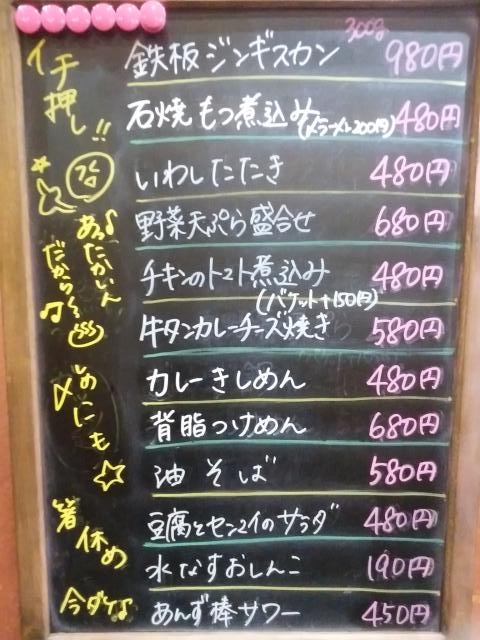 イチ押し!!
300g
鉄板ジンギスカン 980円
石焼もつ煮込み(〆ラーメン200円) 480円
いわしたたき 480円
野菜天ぷら盛合せ 680円
あったかいんだから♪
チキンのトマト煮込み 480円
(バケット+150円)
牛タンカレーチーズ焼き 580円
〆のにも☆
カレーきしめん 480円
背脂つけめん 680円
油そば 580円
箸休め
豆腐とセンマイのサラダ 480円
水なすおしんこ 190円
今ダケ♪
あんず棒サワー 450円